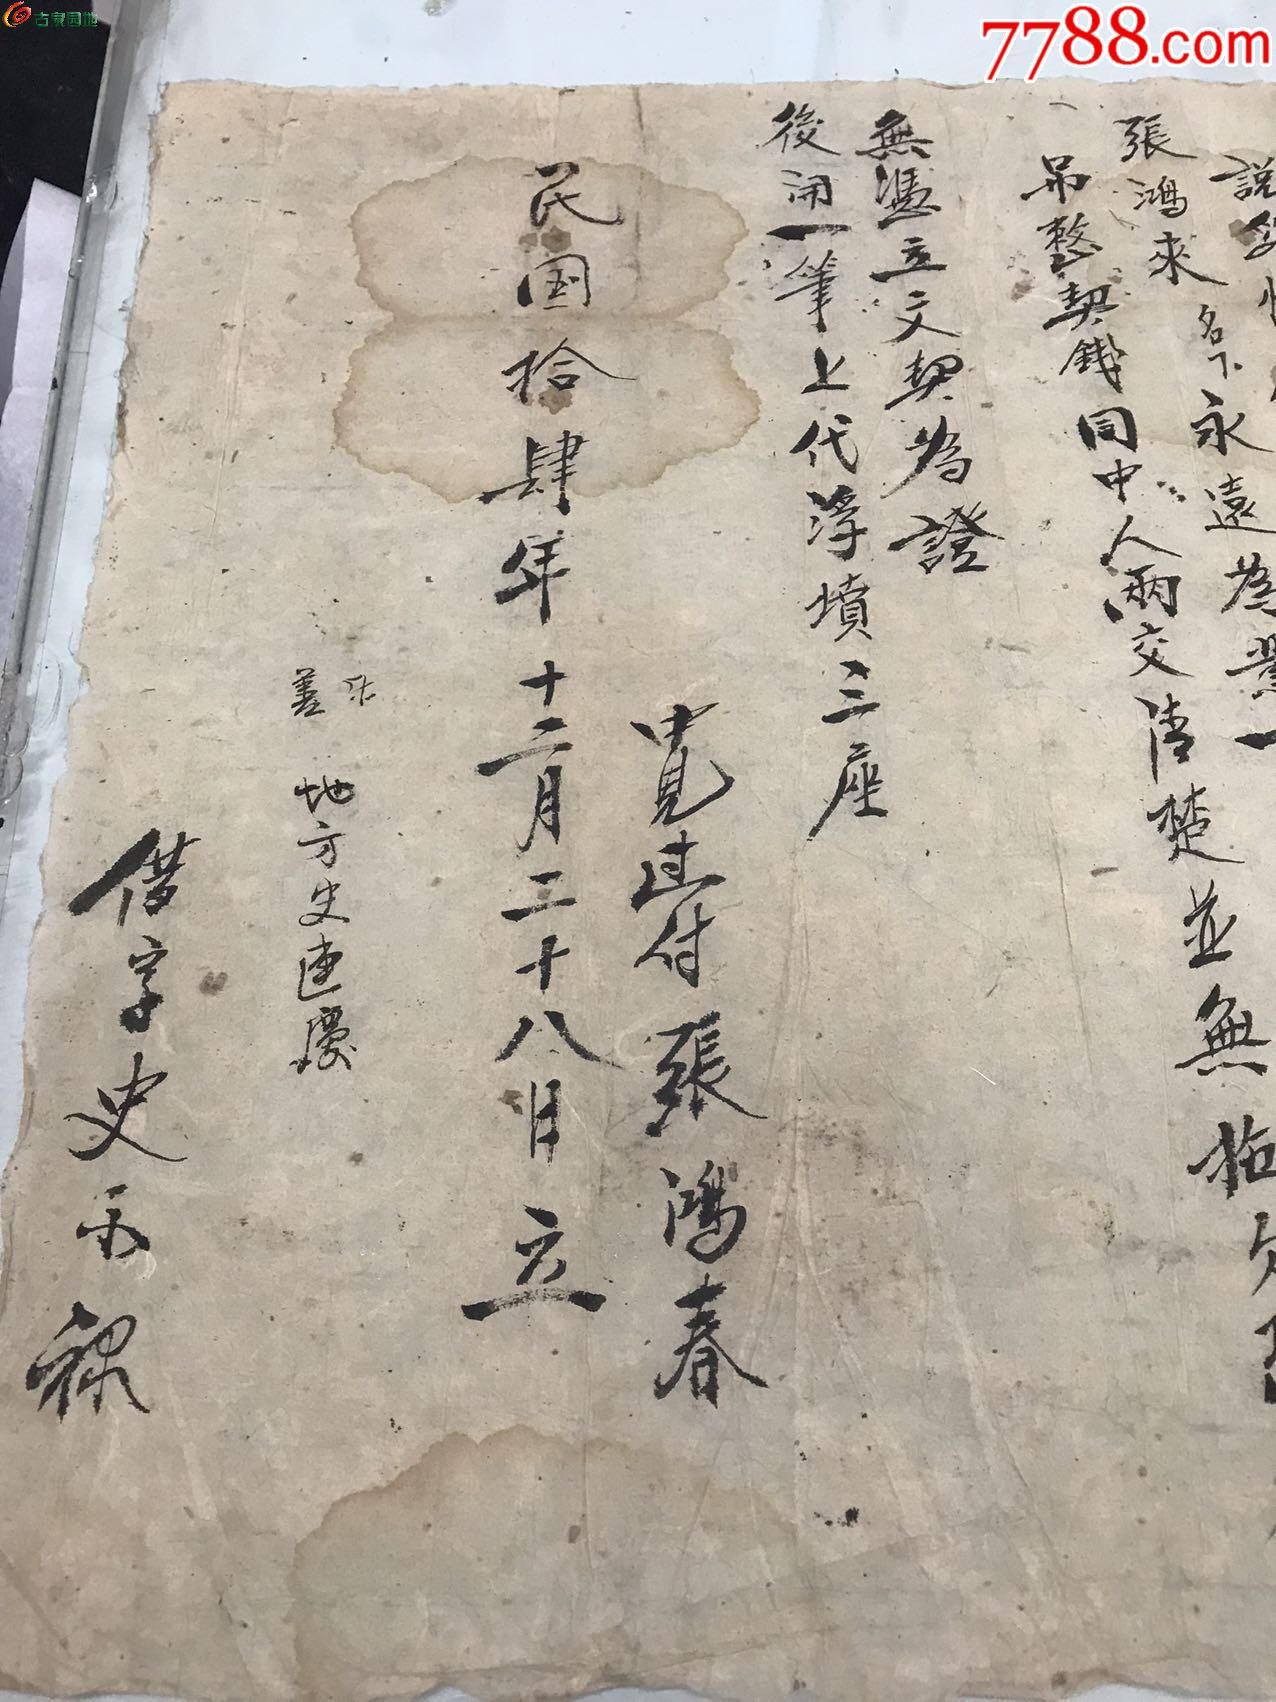 古泉园地
7788.com
說 
張鴻來名下永遠為業一
吊整契錢同中人兩交清楚並無拖欠
無憑立文契為證
後開一筆上代浮墳三座
中見過付張鴻春
民国拾肆年十二月二十八日立
善
地方史連慶
借字史禄